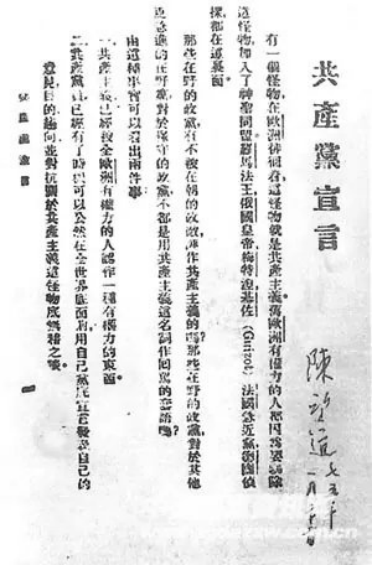 共產黨宣言
陳望道 七五年
一月
有一個怪物,在歐洲徘徊着,這怪物就是共產主義。舊歐洲有權力的人都因爲要驅除
這怪物,加入了神聖同盟。羅馬法王,俄國皇帝,梅特涅,基佐(Guizot),法國急進黨,德國偵
探都在這裏面。
那些在野的政黨,有不被在朝的政敵,誣作共產主義的嗎?那些在野的政黨,對於其他
更急進的在野黨,對於保守的政黨,不都是用共產主義這名詞作回罵的套語嗎?
由這種事實可以看出兩件事:
一、共產主義,已經被全歐洲有權力的人認作一種有權力的東西。
二、共產黨員,已經有了時機可以公然在全世界底面前,用自己黨底宣言發表自己的
意見,目的,趨向,並對抗關於共產主義這怪物底無稽之談。
共產黨宣言
一